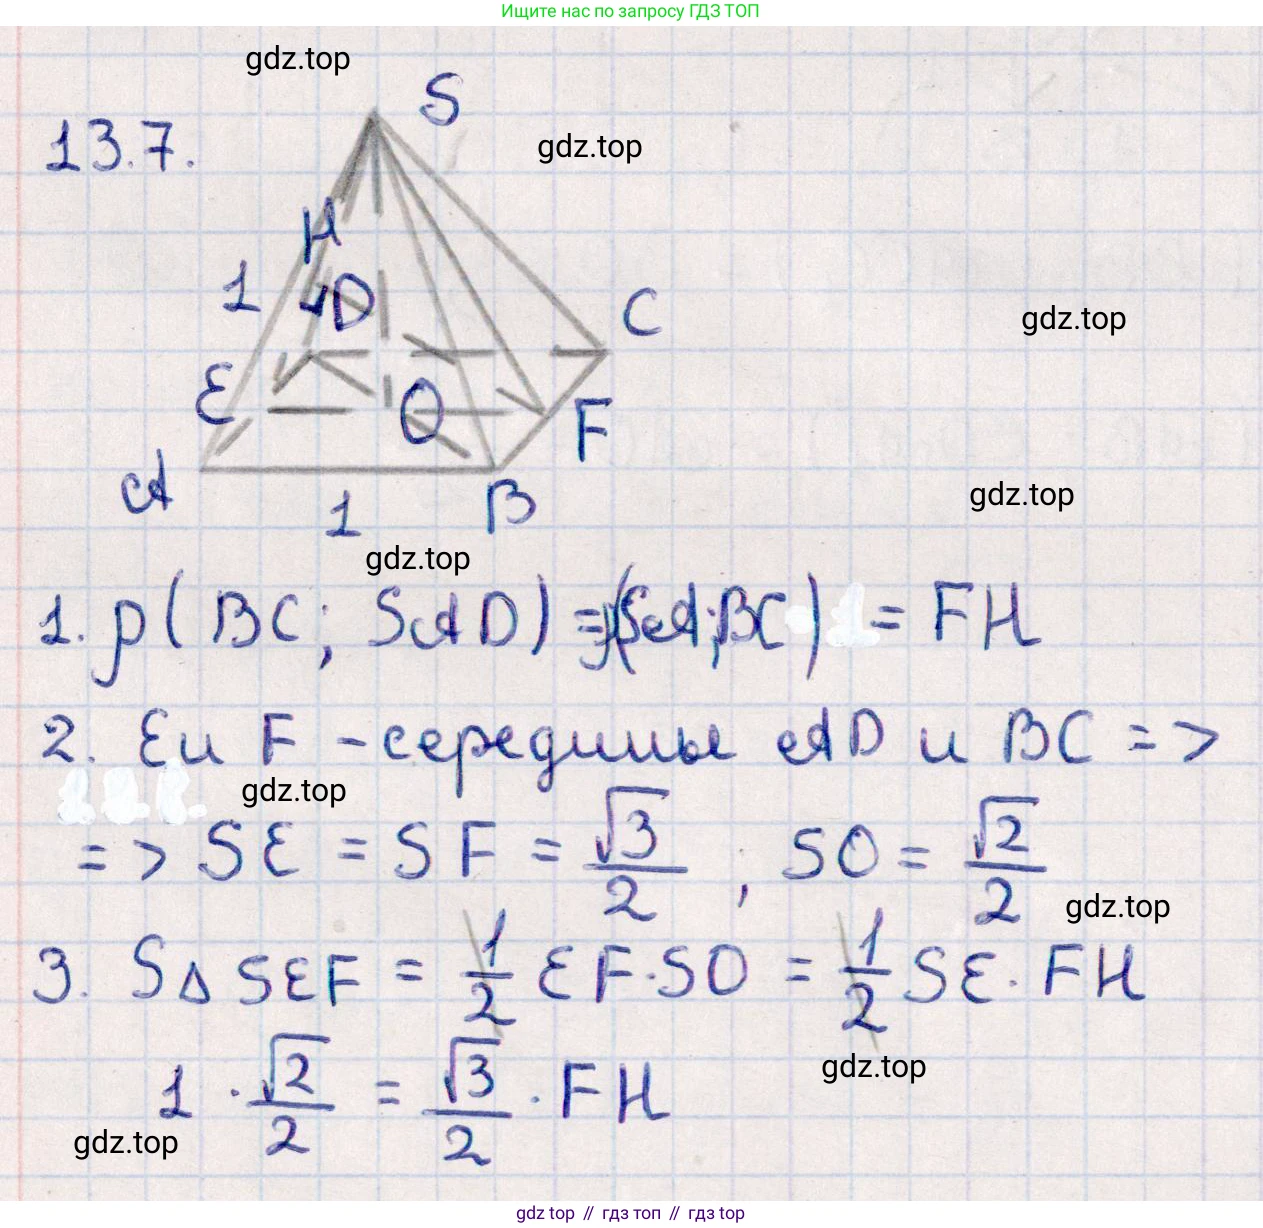 Ищите нас по запросу ГДЗ ТОП
gdz.top
13.7.
S
gdz.top
H
1
D
C
gdz.top
E
O
F
A
1
B
gdz.top
gdz.top
1. ρ(BC; SAD) = ρ(SA; BC) = FH
2. E и F - середины AD и BC =>
gdz.top
=> SE = SF = √3/2 ; SO = √2/2
gdz.top
3. S△SEF = 1/2 EF·SO = 1/2 SE·FH
gdz.top
1 · √2/2 = √3/2 · FH
gdz.top
gdz top // гдз топ // гдз top